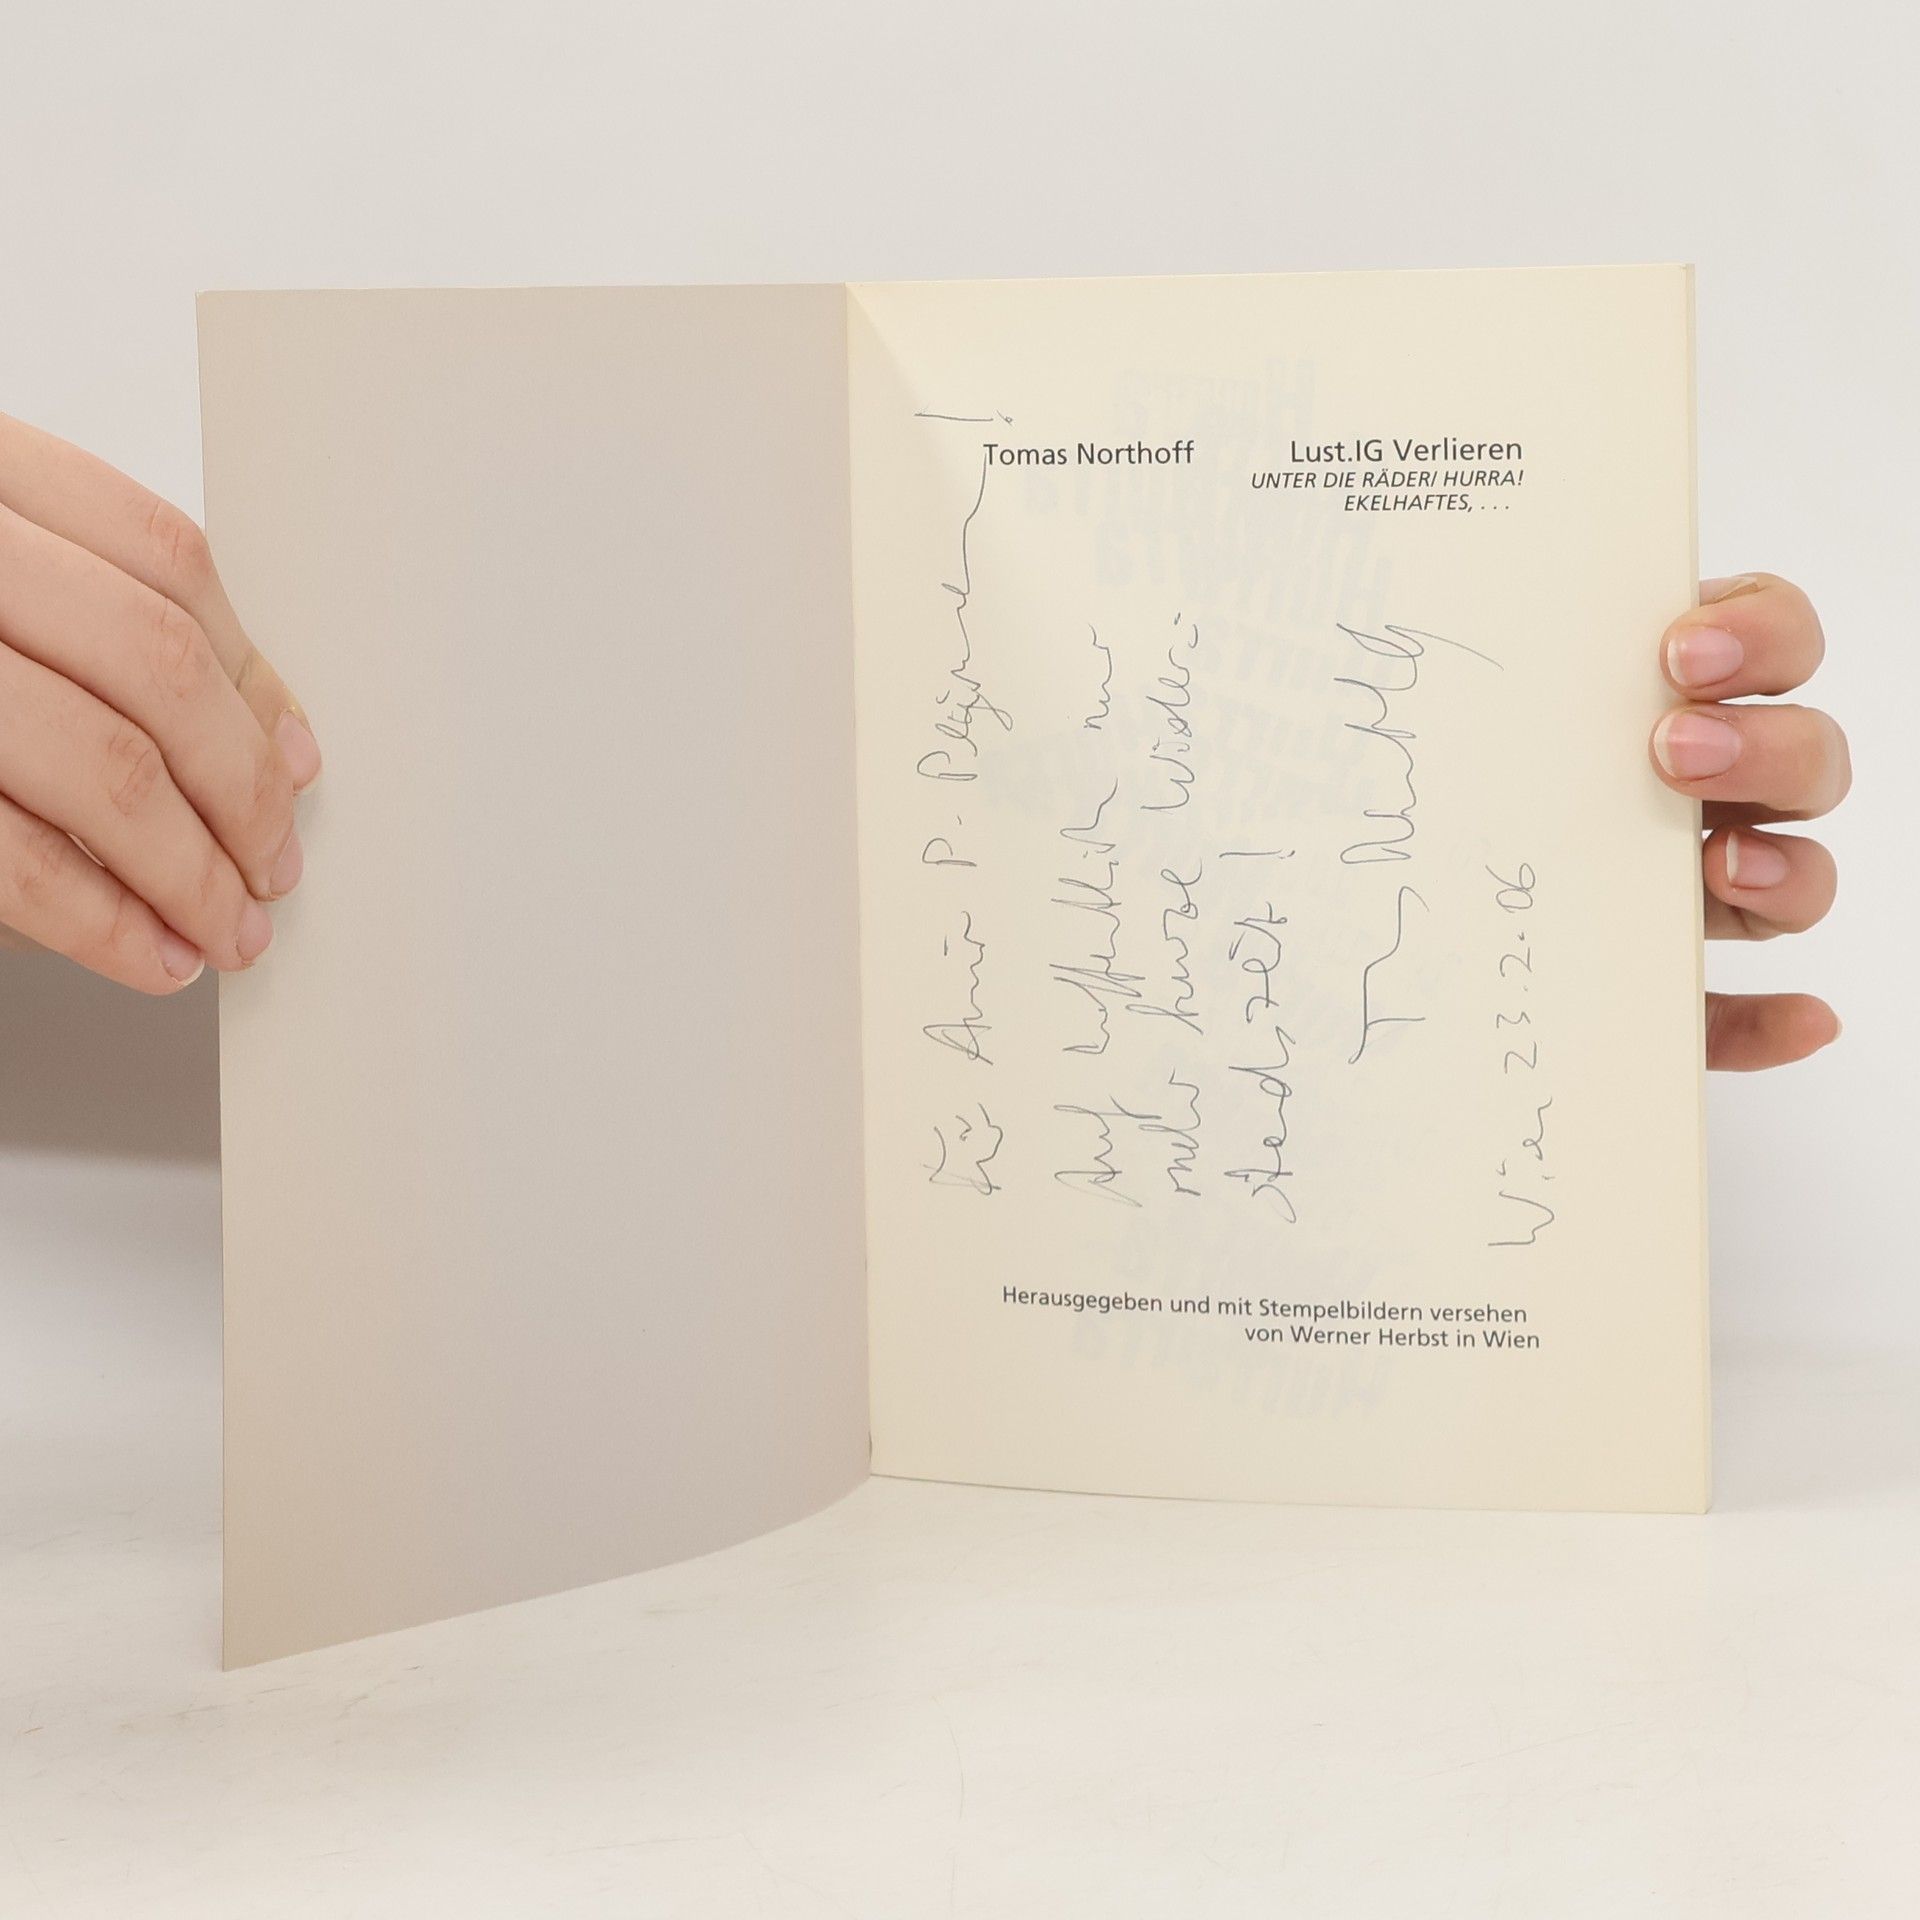 Tomas Northoff
Lust.IG Verlieren
UNTER DIE RÄDER/ HURRA!
EKELHAFTES, . . .
Für Armin P.
Auf hoffentlich nur
mehr kurze Wider=
standszeit!
Wien 23.2.06
Herausgegeben und mit Stempelbildern versehen
von Werner Herbst in Wien